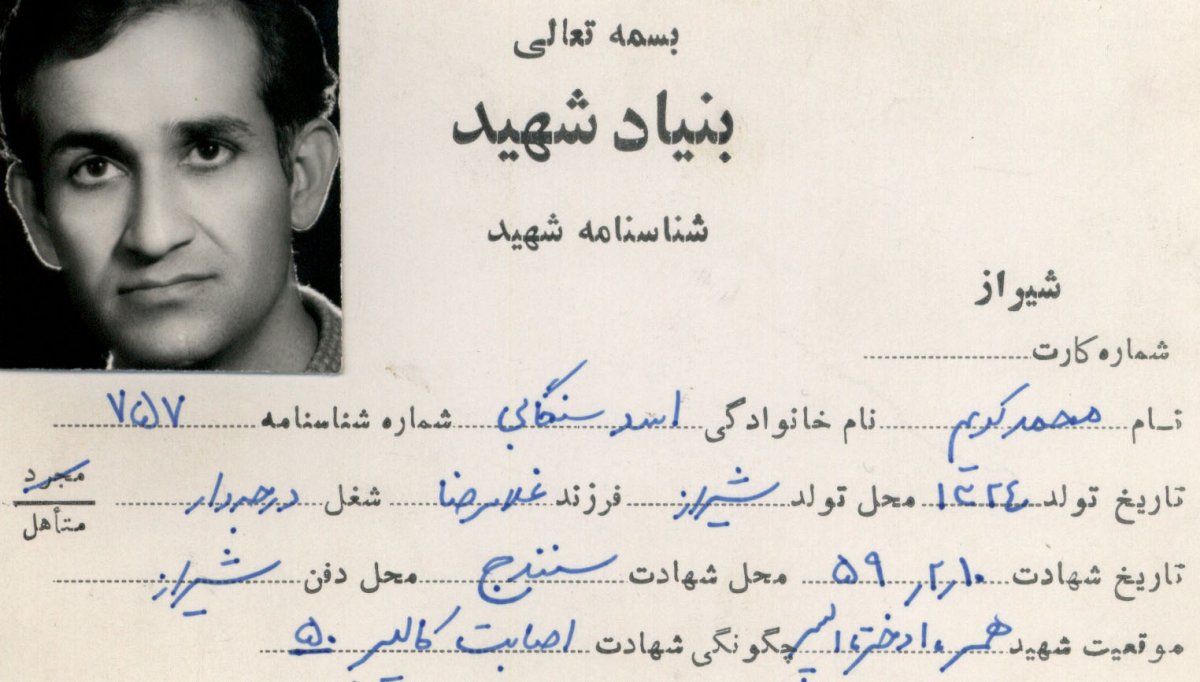 بسمه تعالی
بنیاد شهید
شناسنامه شهید
شیراز
شماره کارت
نام محمد کریم نام خانوادگی اسد سنگابی شماره شناسنامه ۷۵۷
تاریخ تولد ۱۳۲۴ محل تولد شیراز فرزند غلامرضا شغل درجه‌دار مجرد
متأهل
تاریخ شهادت ۱۰ر۲ر۵۹ محل شهادت سنندج محل دفن شیراز
موقعیت شهید همسر، ۱ دختر، ۱ پسر چگونگی شهادت اصابت کالیبر ۵۰